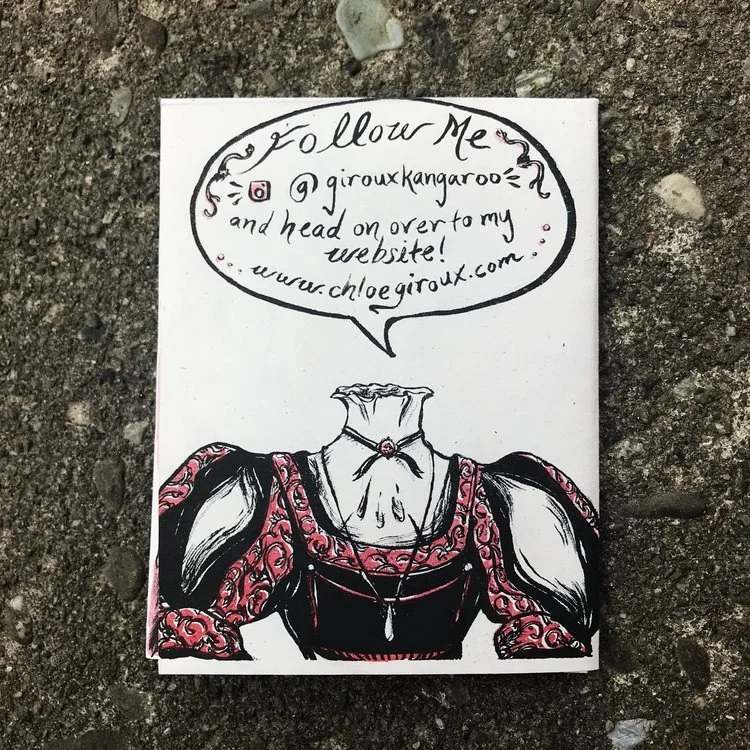 Follow Me
@girouxkangaroo
and head on over to my
website!
www.chloegiroux.com